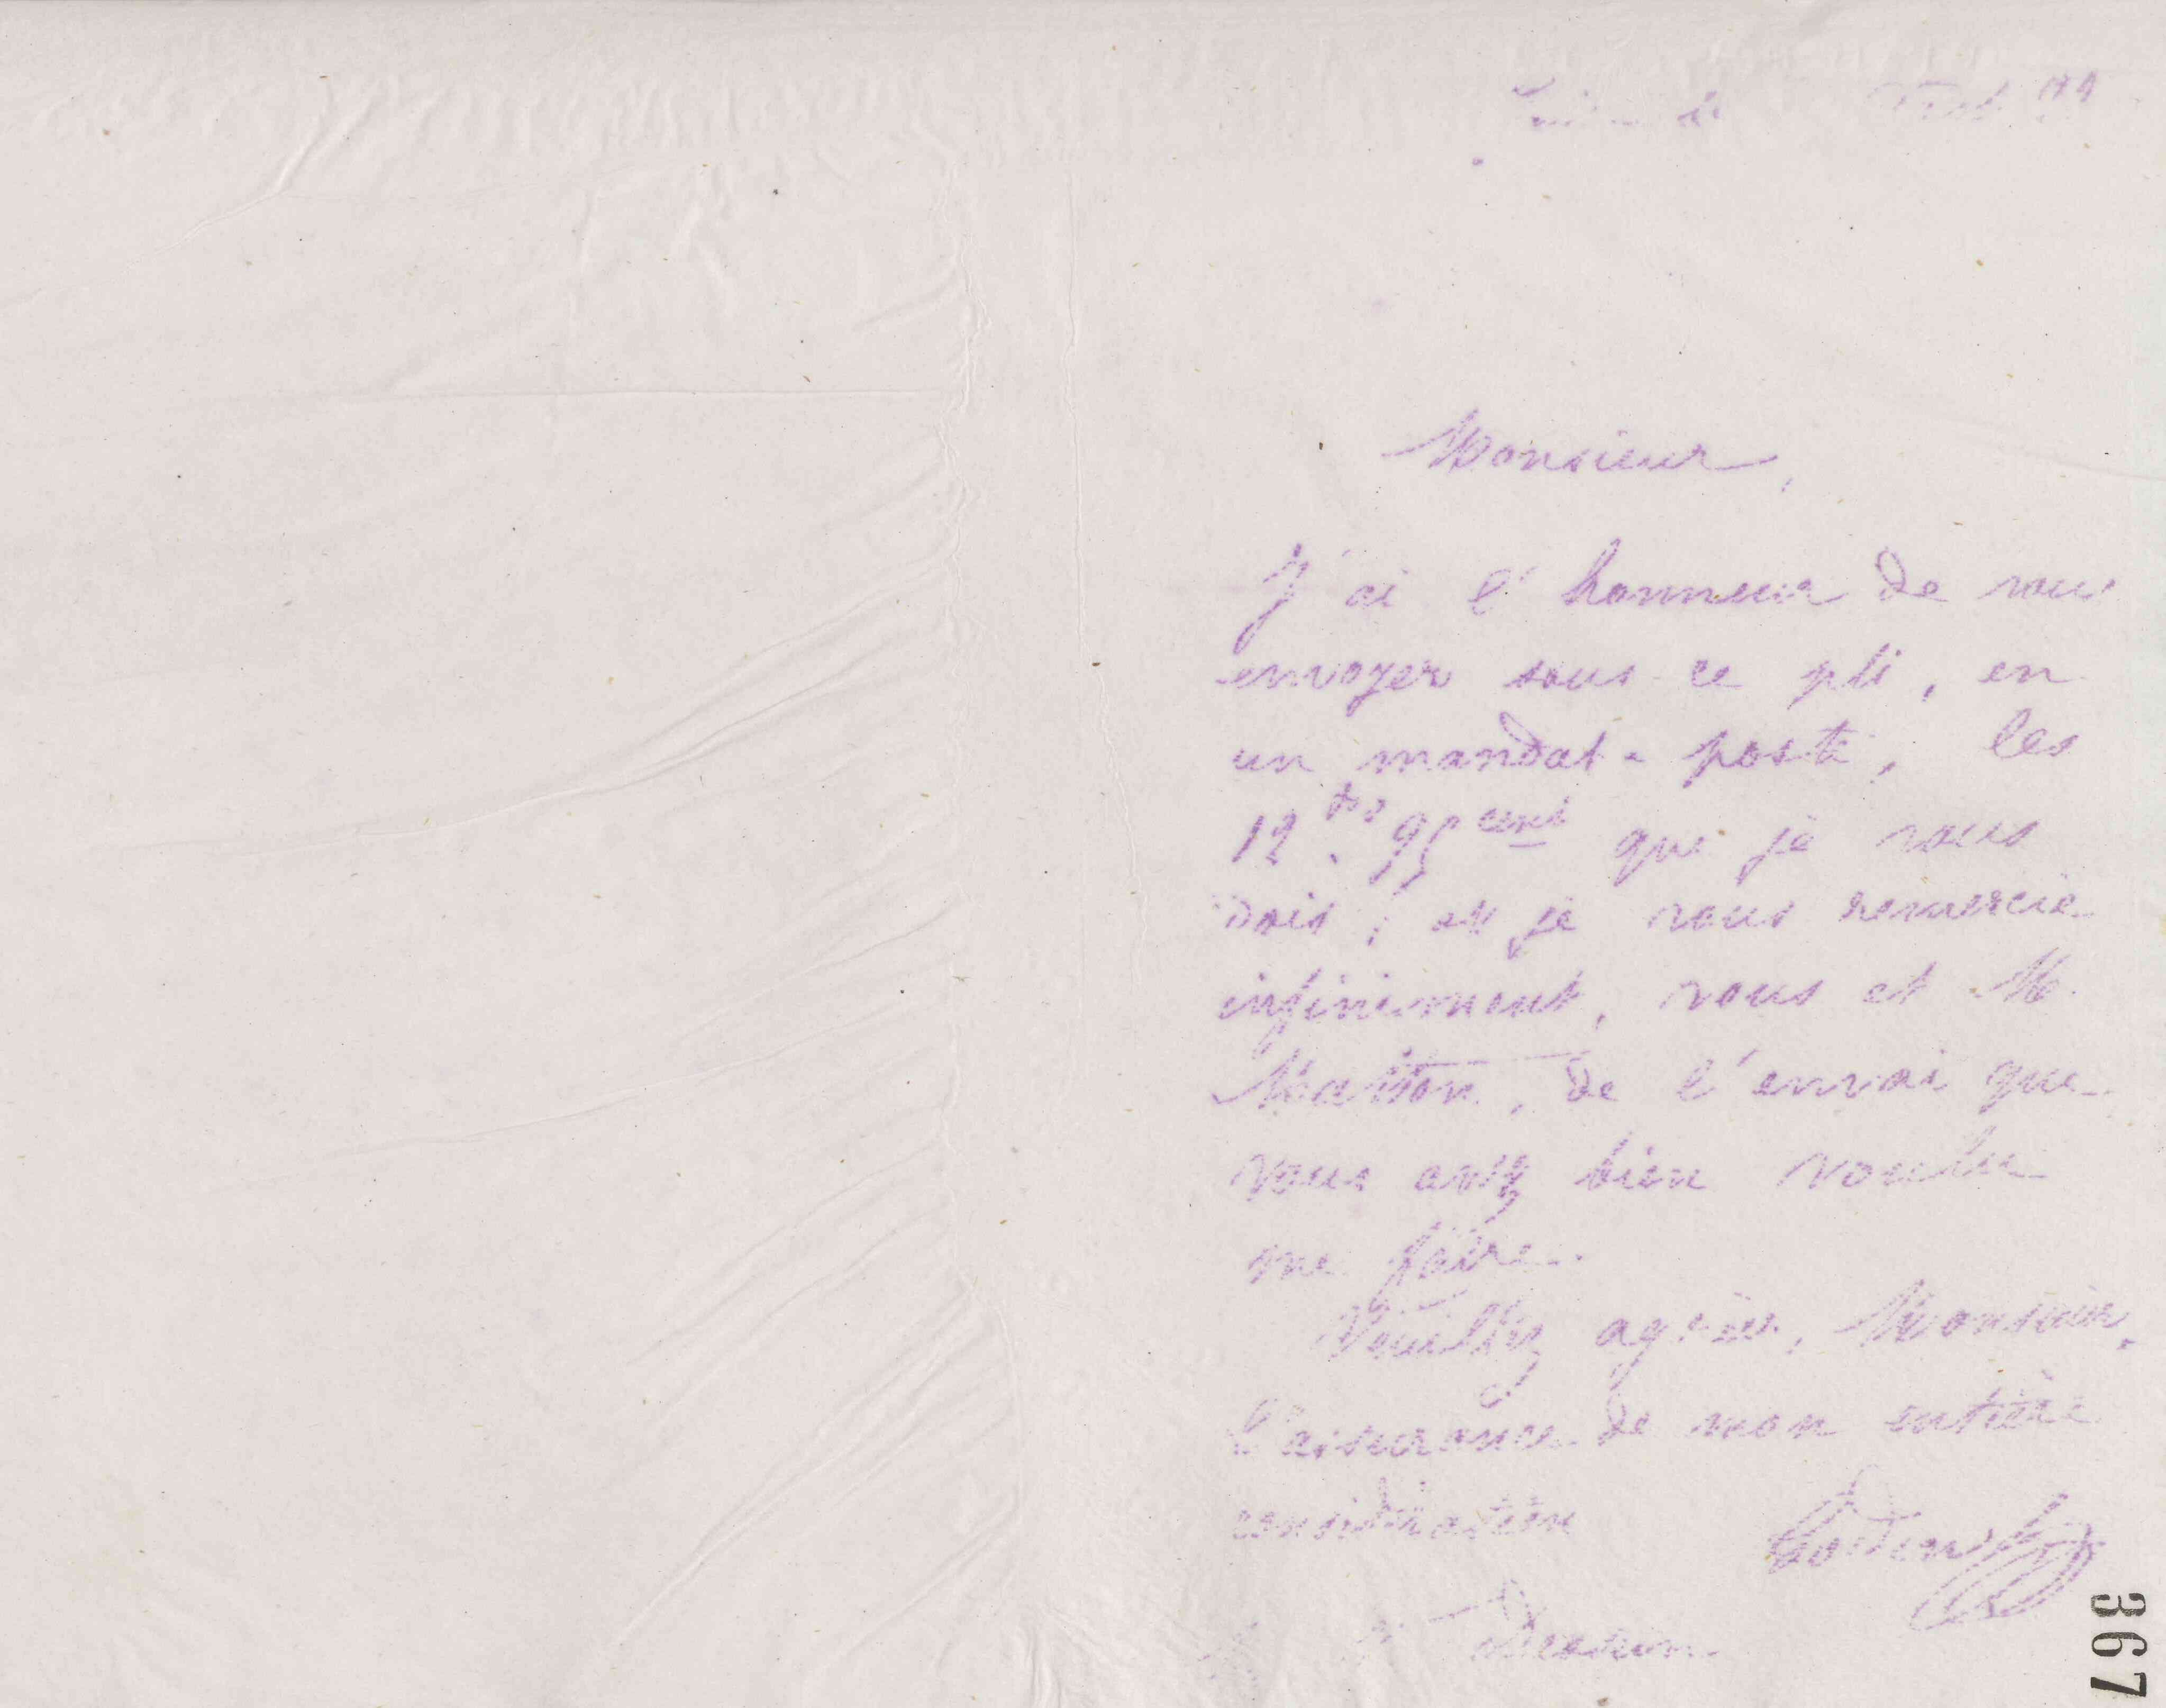 Monsieur,
J'ai l'honneur de vous
envoyer sous ce pli, en
un mandat-poste, les
12 frs 95 cent que je vous
dois; et je vous remercie
infiniment, vous et M.
Matton, de l'envoi que
vous avez bien voulu
me faire.
Veuillez agréer, Monsieur,
l'assurance de mon entière
considération
Godin
367